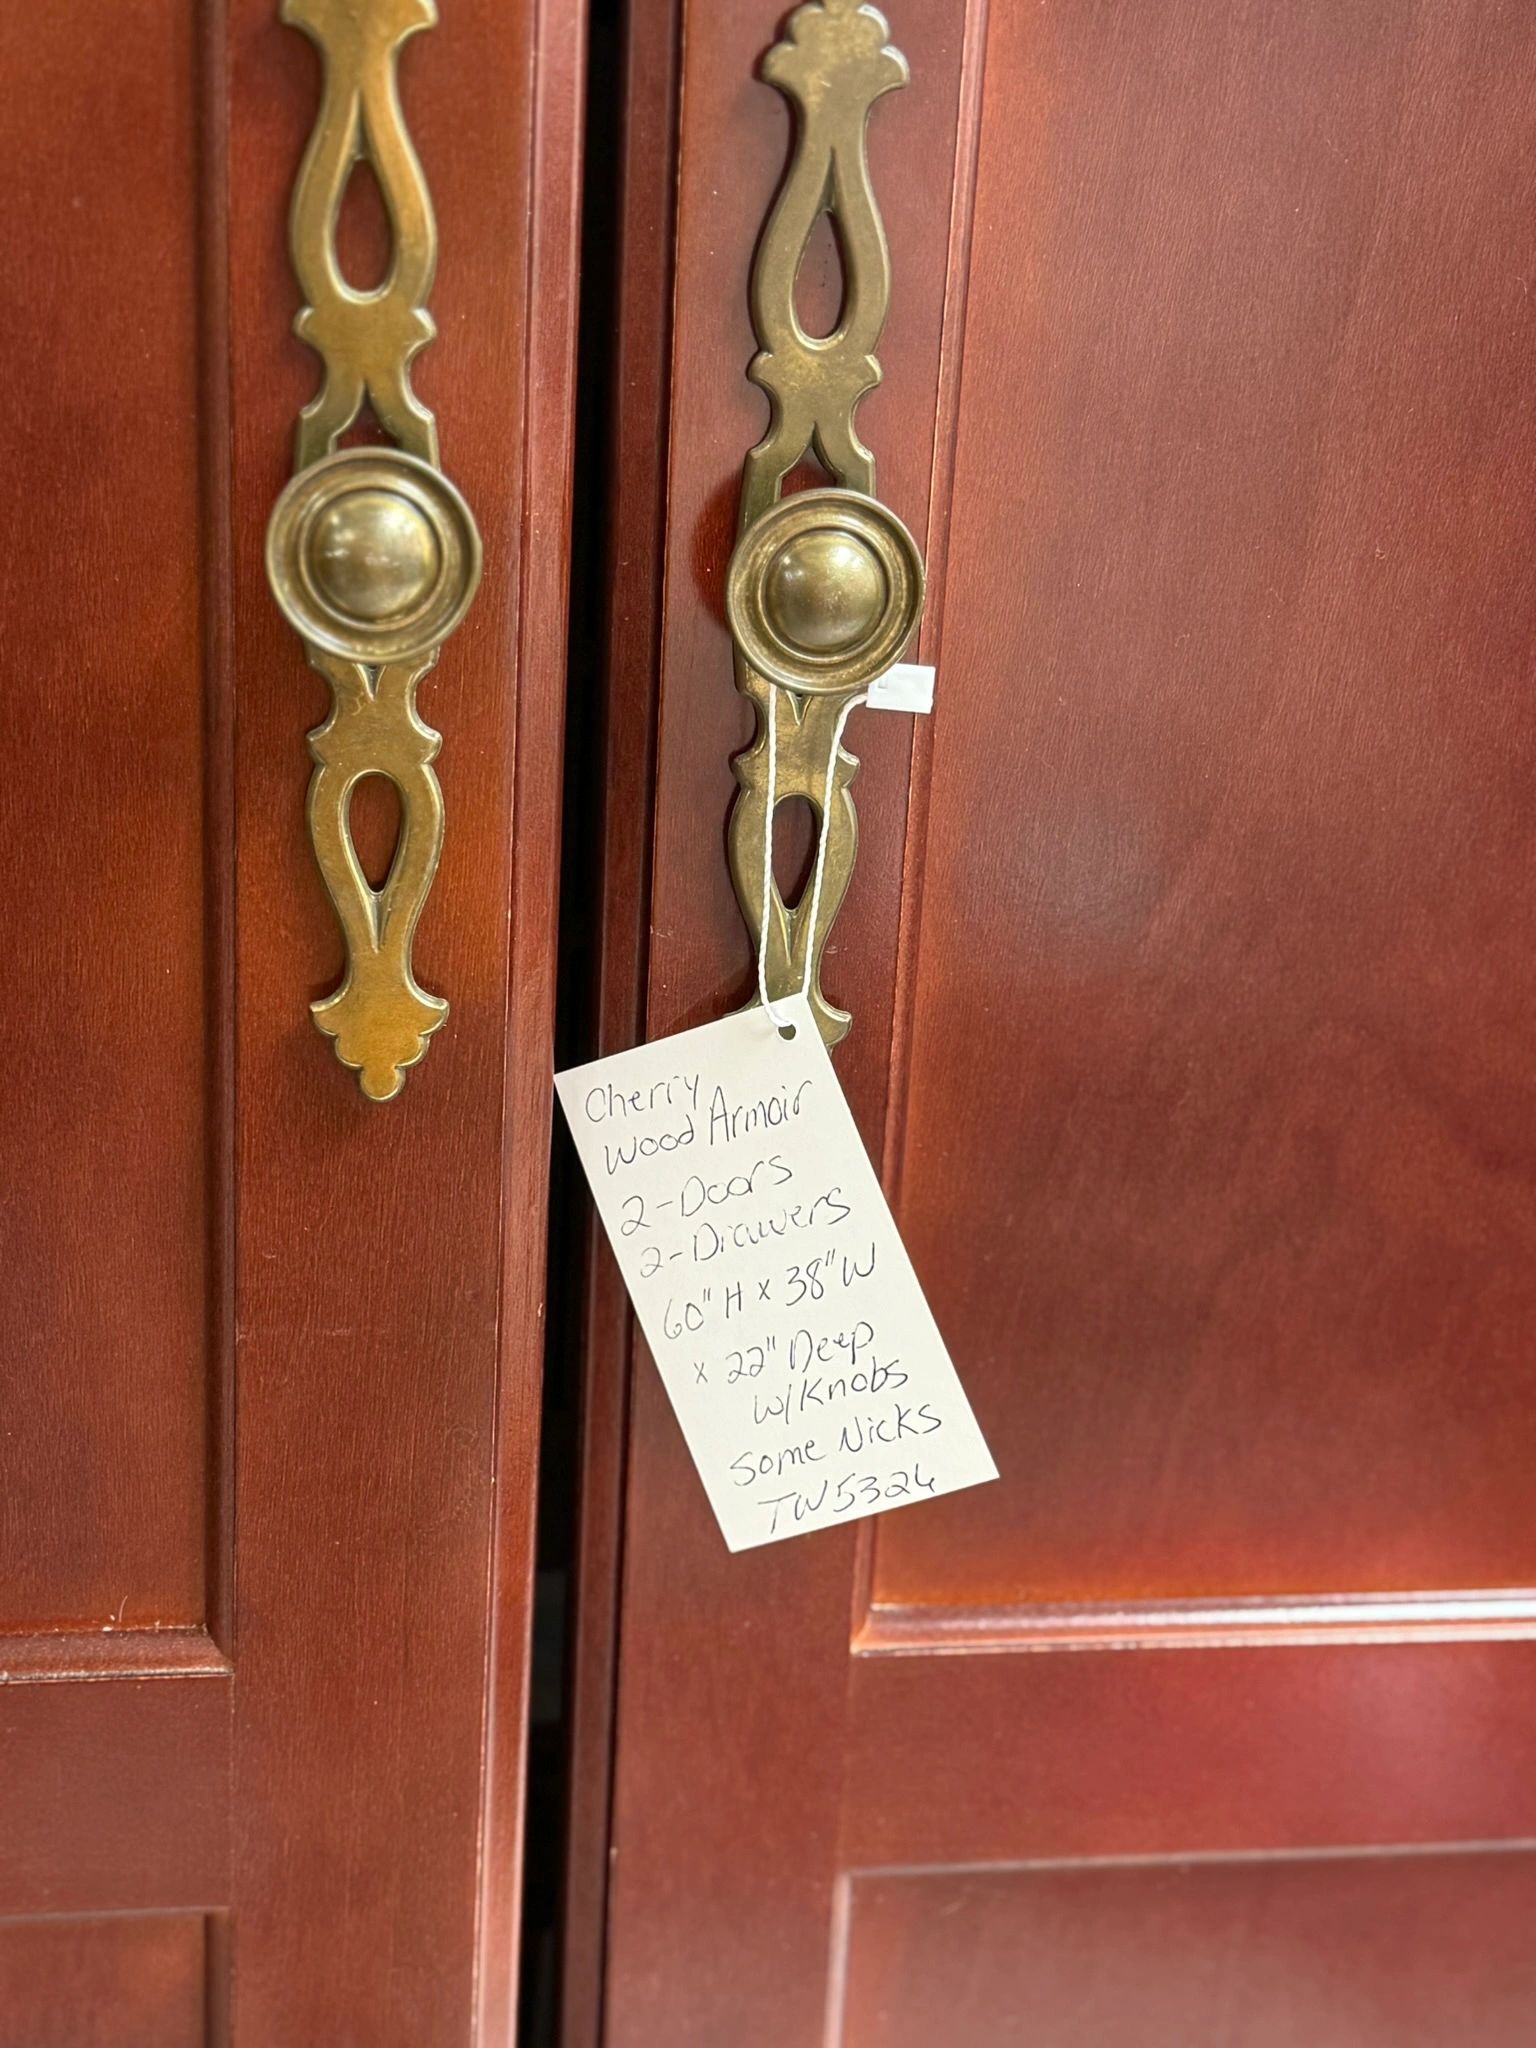 Cherry
Wood Armoir
2-Doors
2-Drawers
60" H x 38" W
x 22" Deep
w/Knobs
Some Nicks
TW5326